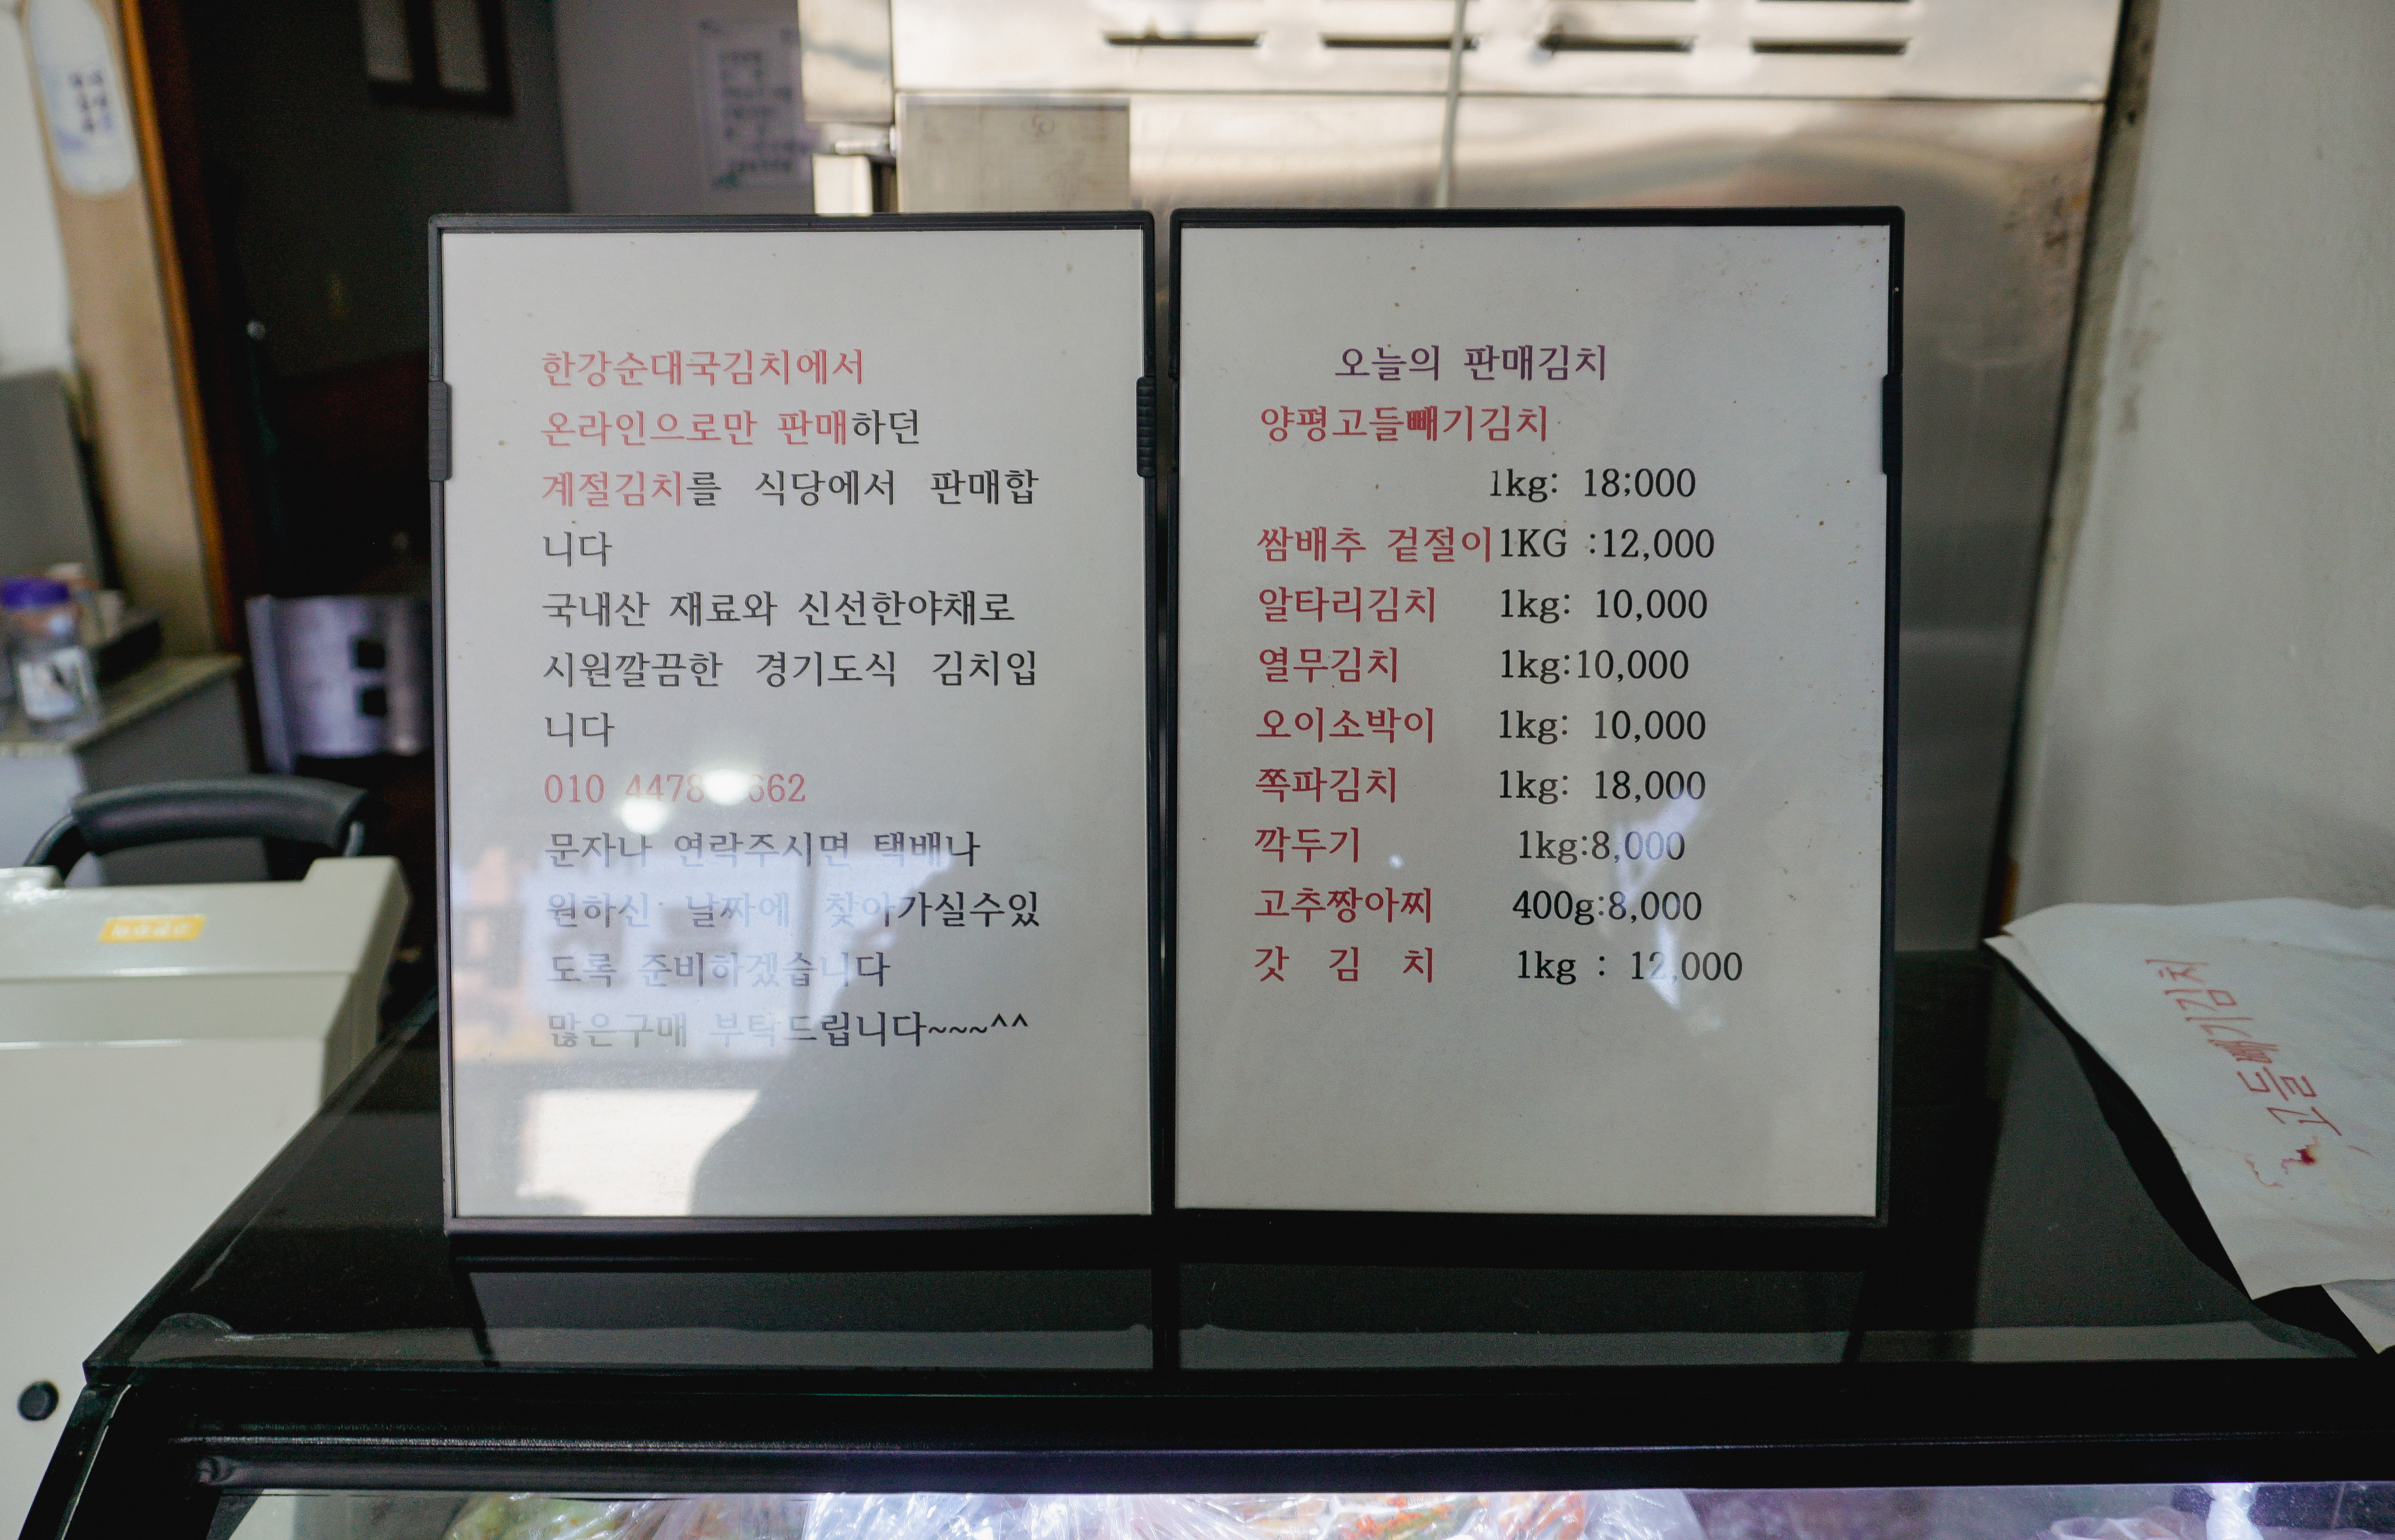 한강순대국김치에서
온라인으로만 판매하던
계절김치를 식당에서 판매합
니다
국내산 재료와 신선한야채로
시원깔끔한 경기도식 김치입
니다
010 4478 662
문자나 연락주시면 택배나
원하신 날짜에 찾아가실수있
도록 준비하겠습니다
많은구매 부탁드립니다~~~^^
오늘의 판매김치
양평고들빼기김치
1kg: 18;000
쌈배추 겉절이1KG :12,000
알타리김치 1kg: 10,000
열무김치 1kg:10,000
오이소박이 1kg: 10,000
쪽파김치 1kg: 18,000
깍두기 1kg:8,000
고추짱아찌 400g:8,000
갓 김 치 1kg : 12,000
고들빼기김치